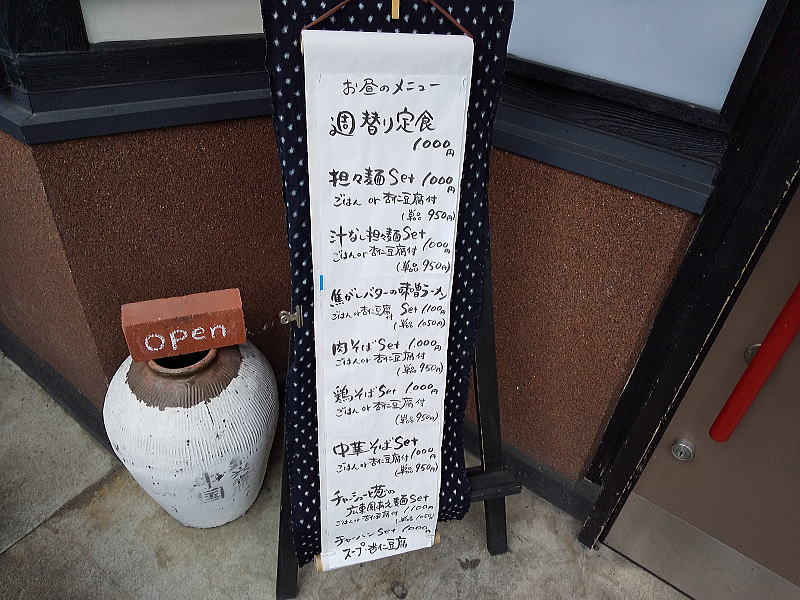 お昼のメニュー
週替り定食
1000円
担々麺Set 1000円
ごはん or 杏仁豆腐付
(単品 950円)
汁なし担々麺Set
ごはん or 杏仁豆腐付 1000円
(単品 950円)
焦がしバターの味噌ラーメン
ごはん or 杏仁豆腐付 Set 1100円
(単品 1050円)
肉そばSet 1000円
ごはん or 杏仁豆腐付
(単品 950円)
鶏そばSet 1000円
ごはん or 杏仁豆腐付
(単品 950円)
中華そばSet
ごはん or 杏仁豆腐付 1000円
(単品 950円)
チャーシューと葱の
広東風あえ麺Set
ごはん or 杏仁豆腐付 1100円
(単品 1050)
チャーハンSet 1000円
スープ・杏仁豆腐
open
中国